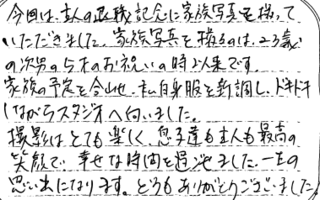 今回は、主人の退職記念に家族写真を撮って
いただきました。家族写真を撮るのは、23歳の
次男の七五三のお祝いの時以来です。
家族の予定を合わせ、私自身服を新調し、ドキドキ
しながらスタジオへ向いました。
撮影はとても楽しく、息子達も主人も最高の
笑顔で、幸せな時間を過せました。一生の
思い出になります。どうもありがとうございました。